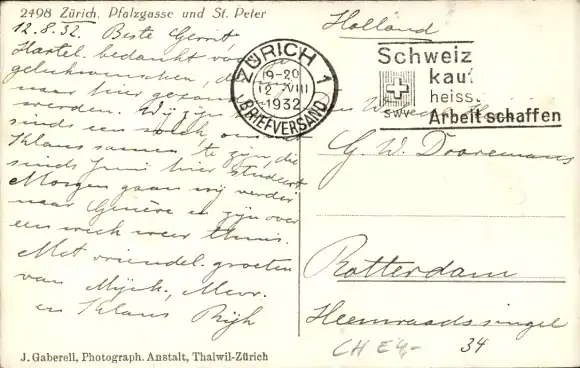 2498 Zürich. Pfalzgasse und St. Peter
12.8.32. Beste Gerrit
Hartel. bedankt voor
gelukwenschen, die
naar hier gezonden
werden. Wij zijn
sinds een week om
Klaus samen te zijn, die
sinds Juni hier studeert
Morgen gaan wij verder
naar Genève en zijn over
een week weer thuis.
Met vriendel. groeten
van Mijch., Mevr.
en Klaus Rijk
J. Gaberell, Photograph. Anstalt, Thalwil-Zürich
ZÜRICH 1
19-20
12 VIII
1932
BRIEFVERSAND
Schweiz
kauf
heiss.
SWV
Arbeit schaffen
Holland
G W Dooremans
Rotterdam
Heemraadssingel
34
CH